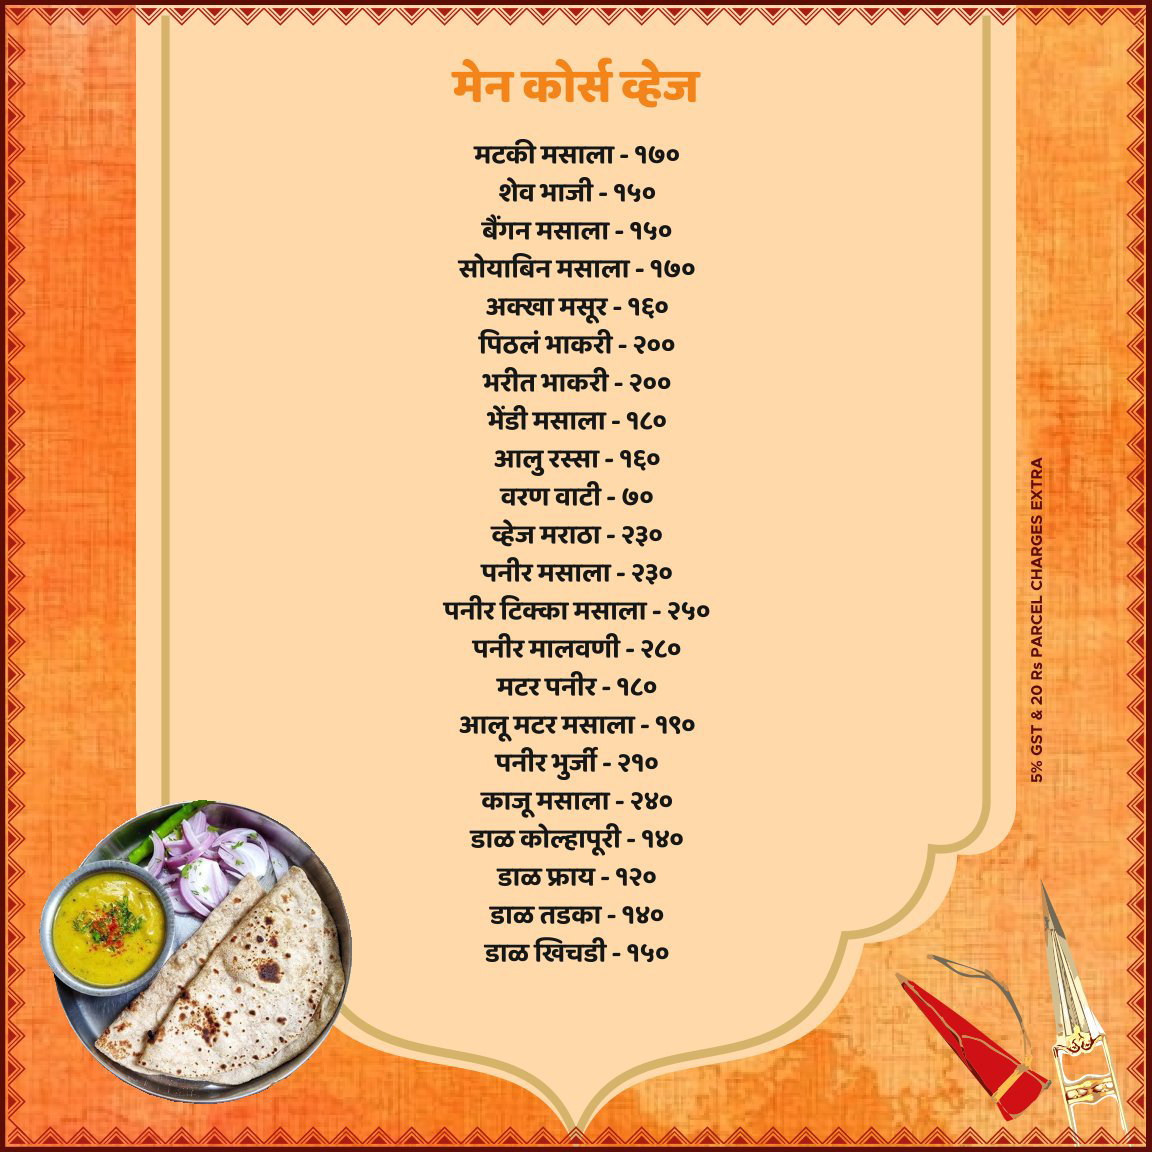 मेन कोर्स व्हेज
मटकी मसाला - १७०
शेव भाजी - १५०
बैंगन मसाला - १५०
सोयाबिन मसाला - १७०
अक्खा मसूर - १६०
पिठलं भाकरी - २००
भरीत भाकरी - २००
भेंडी मसाला - १८०
आलु रस्सा - १६०
वरण वाटी - ७०
व्हेज मराठा - २३०
पनीर मसाला - २३०
पनीर टिक्का मसाला - २५०
पनीर मालवणी - २८०
मटर पनीर - १८०
आलू मटर मसाला - १९०
पनीर भुर्जी - २१०
काजू मसाला - २४०
डाळ कोल्हापूरी - १४०
डाळ फ्राय - १२०
डाळ तडका - १४०
डाळ खिचडी - १५०
5% GST & 20 Rs PARCEL CHARGES EXTRA